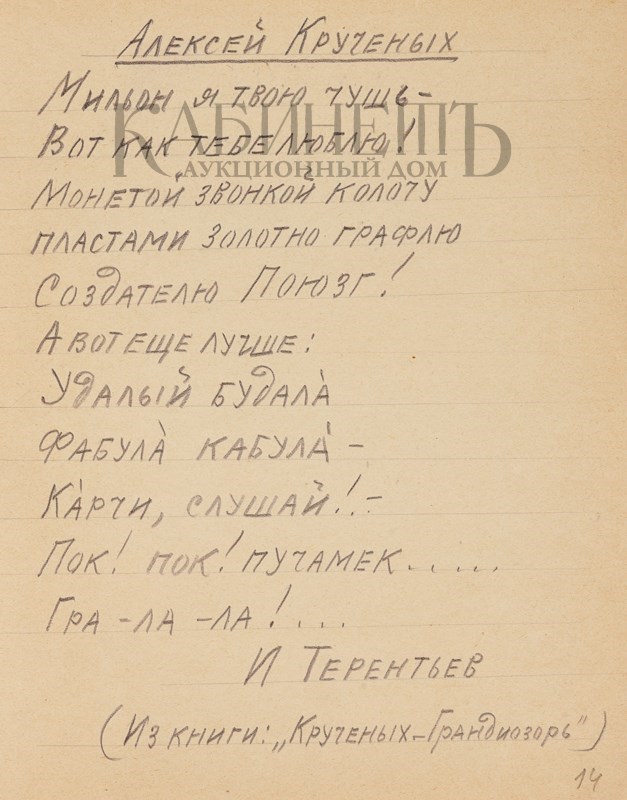 Алексей Крученых
Мильон я твою чушь –
Вот как тебе люблю!
КАБИНЕТЪ
АУКЦИОННЫЙ ДОМ
Монетой звонкой колочу
пластами золотно графлю
Создателю Поюзг!
А вот еще лучше:
Удалый будала̀
Фабула̀ кабула̀ –
Ка̀рчи, слушай! –
Пок! пок! пучамек.....
Гра-ла-ла!...
И Терентьев
(Из книги: „Крученых–Грандиозорь")
14